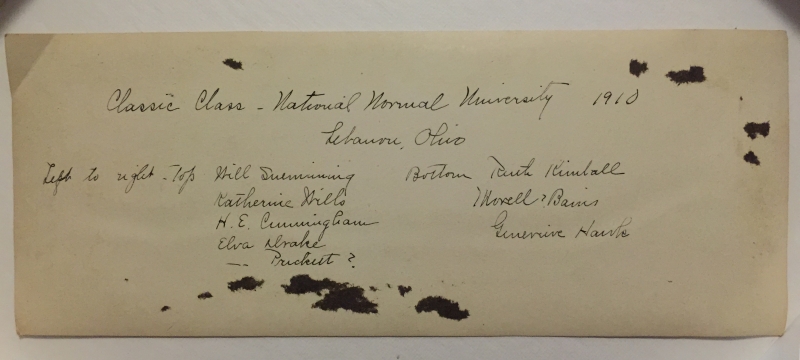 Classic Class - National Normal University 1910
Lebanon, Ohio
Left to right - Top Will
Katherine Wills
H. E. Cunningham
Elva Drake
-- Prickett ?
Bottom Ruth Kimball
Morell ? Bains
Genevieve Hawk